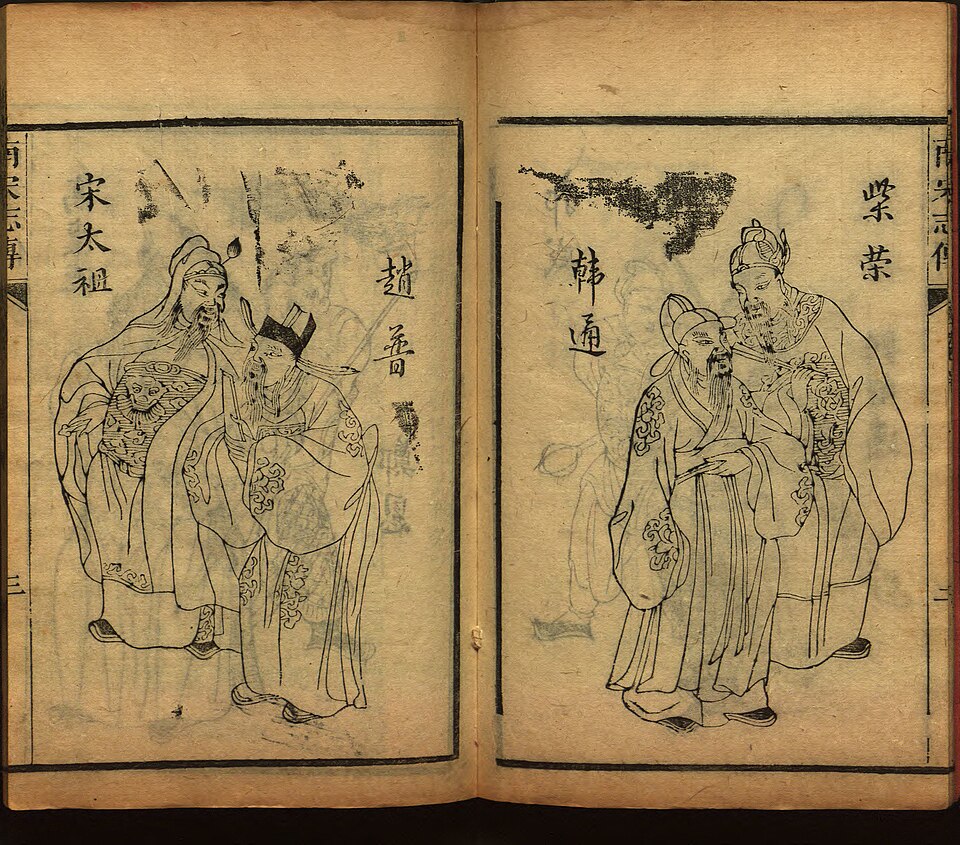 南宋志傳
柴荣
韓通
二
趙普
宋太祖
南宋志傳
三